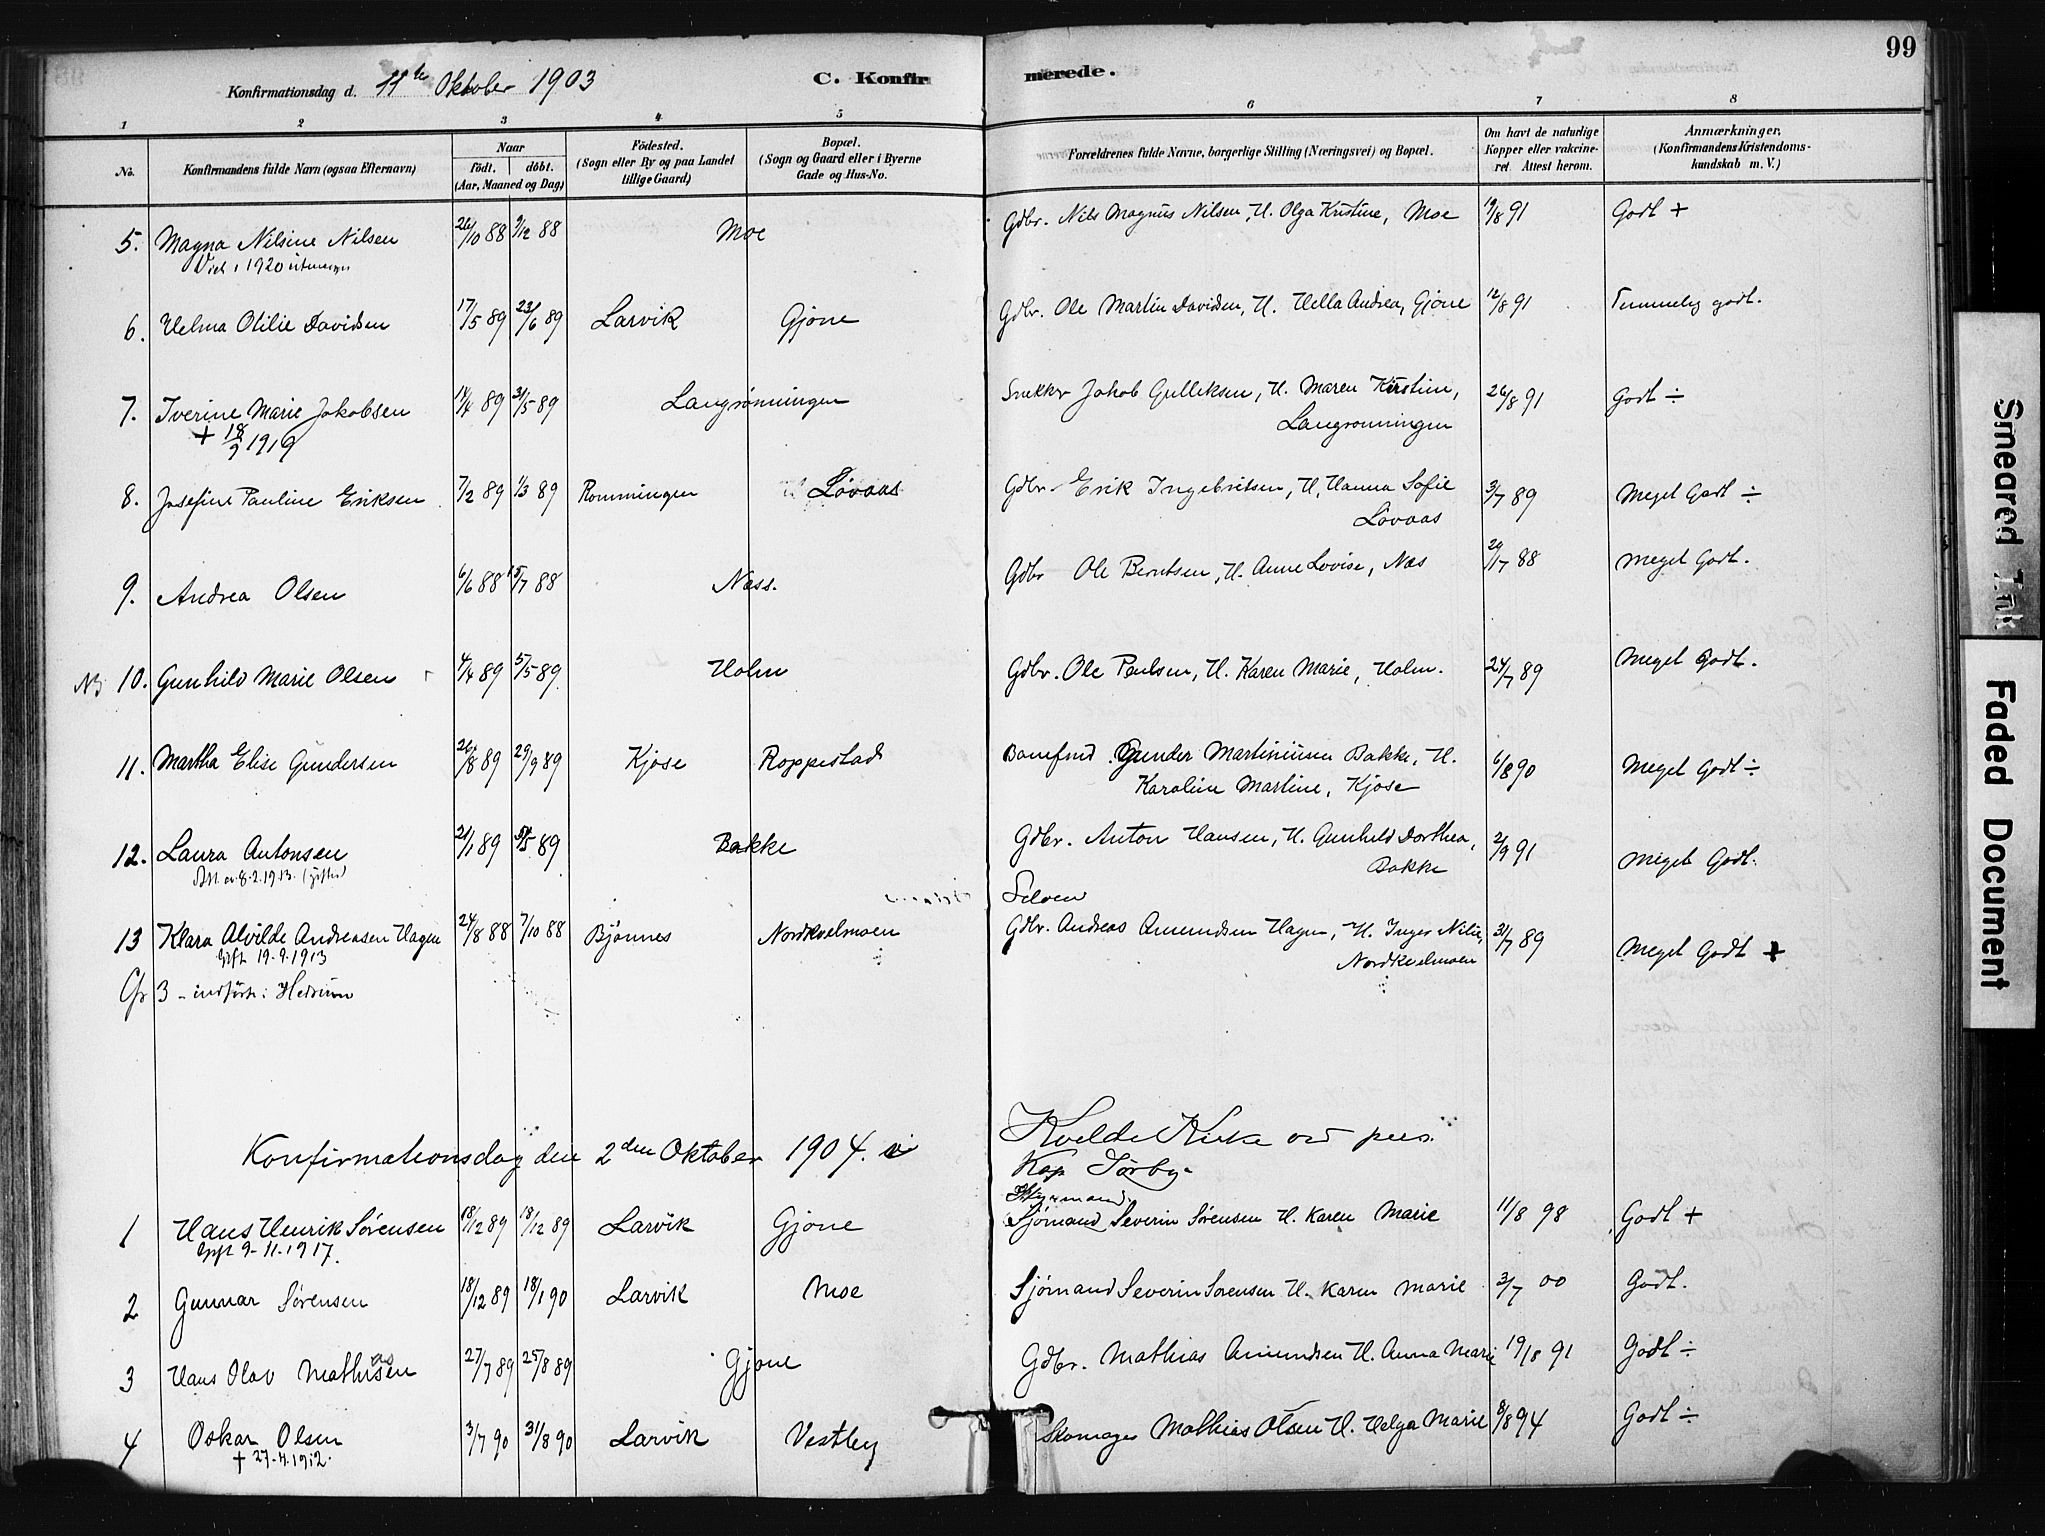 99
Konfirmationsdag d. 11te Oktober 1903 C. Konfirmerede.
1 2 3 4 5 6 7 8
No. Konfirmandens fulde Navn (ogsaa Efternavn) Naar født. døbt. (Aar, Maaned og Dag) Fødested. (Sogn eller By og paa Landet tillige Gaard) Bopæl. (Sogn og Gaard eller i Byerne Gade og Hus-No. Forældrenes fulde Navne, borgerlige Stilling (Næringsvei) og Bopæl. Om havt de naturlige Kopper eller vakcineret Attest herom. Anmærkninger, (Konfirmandens Kristendomskundskab m. V.)
5. Magna Nilsine Nilsen 26/10 88 9/12 88 Moe Gdbr. Nils Magnus Nilsen, H. Olga Kristine, Moe 19/8 91 Godt +
1920
6. Helma Otilie Davidsen 17/5 89 23/6 89 Larvik Gjone Gdbr. Ole Martin Davidsen, H. Hella Andrea, Gjone 12/8 91 Temmelig godt.
7. Iverine Marie Jakobsen 14/4 89 31/5 89 Langrønningen Snekker Jakob Gulliksen, H. Maren Kirstine,
+ 18/9 1919 Langrønningen 26/8 91 Godt ÷
8. Josefine Pauline Eriksen 7/2 89 1/3 89 Rønningen Løvaas Gdbr. Erik Ingebritsen, H. Hanna Sofie
Løvaas 3/7 89 Meget Godt ÷
9. Andrea Olsen 6/6 88 15/7 88 Næss. Gdbr Ole Berntsen, H. Anne Lovise, Næs 20/7 88 Meget Godt.
NB 10. Gunhild Marie Olsen 4/4 89 5/5 89 Holm Gdbr. Ole Paulsen, H. Karen Marie, Holm. 24/7 89 Meget Godt.
11. Martha Elise Gundersen 26/8 89 29/9 89 Kjose Roppestad Banefmd. Gunder Martiniusen Bakke, H.
Karoline Martine, Kjose 6/8 90 Meget Godt ÷
12. Laura Antonsen 21/1 89 5/5 89 Bakke Gdbr. Anton Hansen, H. Gunhild Dorthea,
Att. av 8.2.1913. (gifter) Bakke 2/9 91 Meget Godt.
13 Klara Alvilde Andreasen Hagen 24/8 88 7/10 88 Bjønnes Nordkvelmoen Gdbr. Andreas Amundsen Hagen, H. Inger Nilie,
Gift 19.9.1913 Nordkvelmoen 31/7 89 Meget Godt +
Cfr 3 - indført i Hedrum
Konfirmationsdag den 2den Oktober 1904. i Kvelde Kirke ved pers.
Kap Sørby.
Styrmand
1 Hans Henrik Sørensen 18/12 89 18/12 89 Larvik Gjone Sjømand Severin Sørensen H. Karen Marie 11/8 98 Godt +
Gift 9-11-1917.
2 Gunnar Sørensen 18/12 89 18/1 90 Larvik Moe Sjømand Severin Sørensen H. Karen Marie 3/7 00 Godt.
3 Hans Olav Mathisen 27/7 89 25/8 89 Gjone Gdbr. Mathias Amundsen H. Anna Marie 19/8 91 Godt ÷
4 Oskar Olsen 3/7 90 31/8 90 Larvik Vestby Skomager Mathias Olsen H. Helga Marie 8/8 94 Godt ÷
+ 27-4.1912.
Smeared Ink
Faded Document